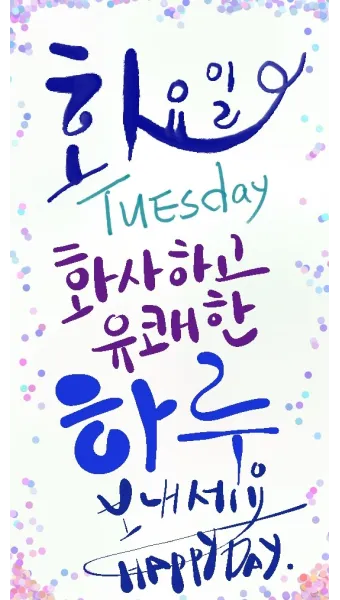 화요일
TUESday
화사하고
유쾌한
하루
보내세요
HAPPY DAY.